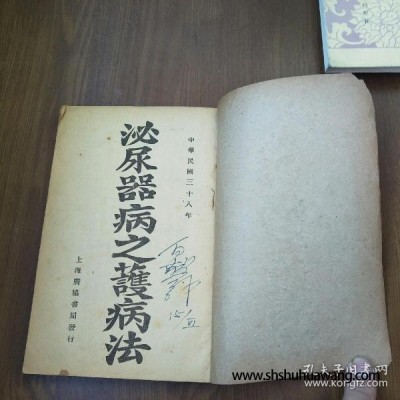 中華民國三十八年
泌尿器病之護病法
上海廣協書局發行
www.shshuhuawang.com
孔夫子旧书网
www.kongfz.com